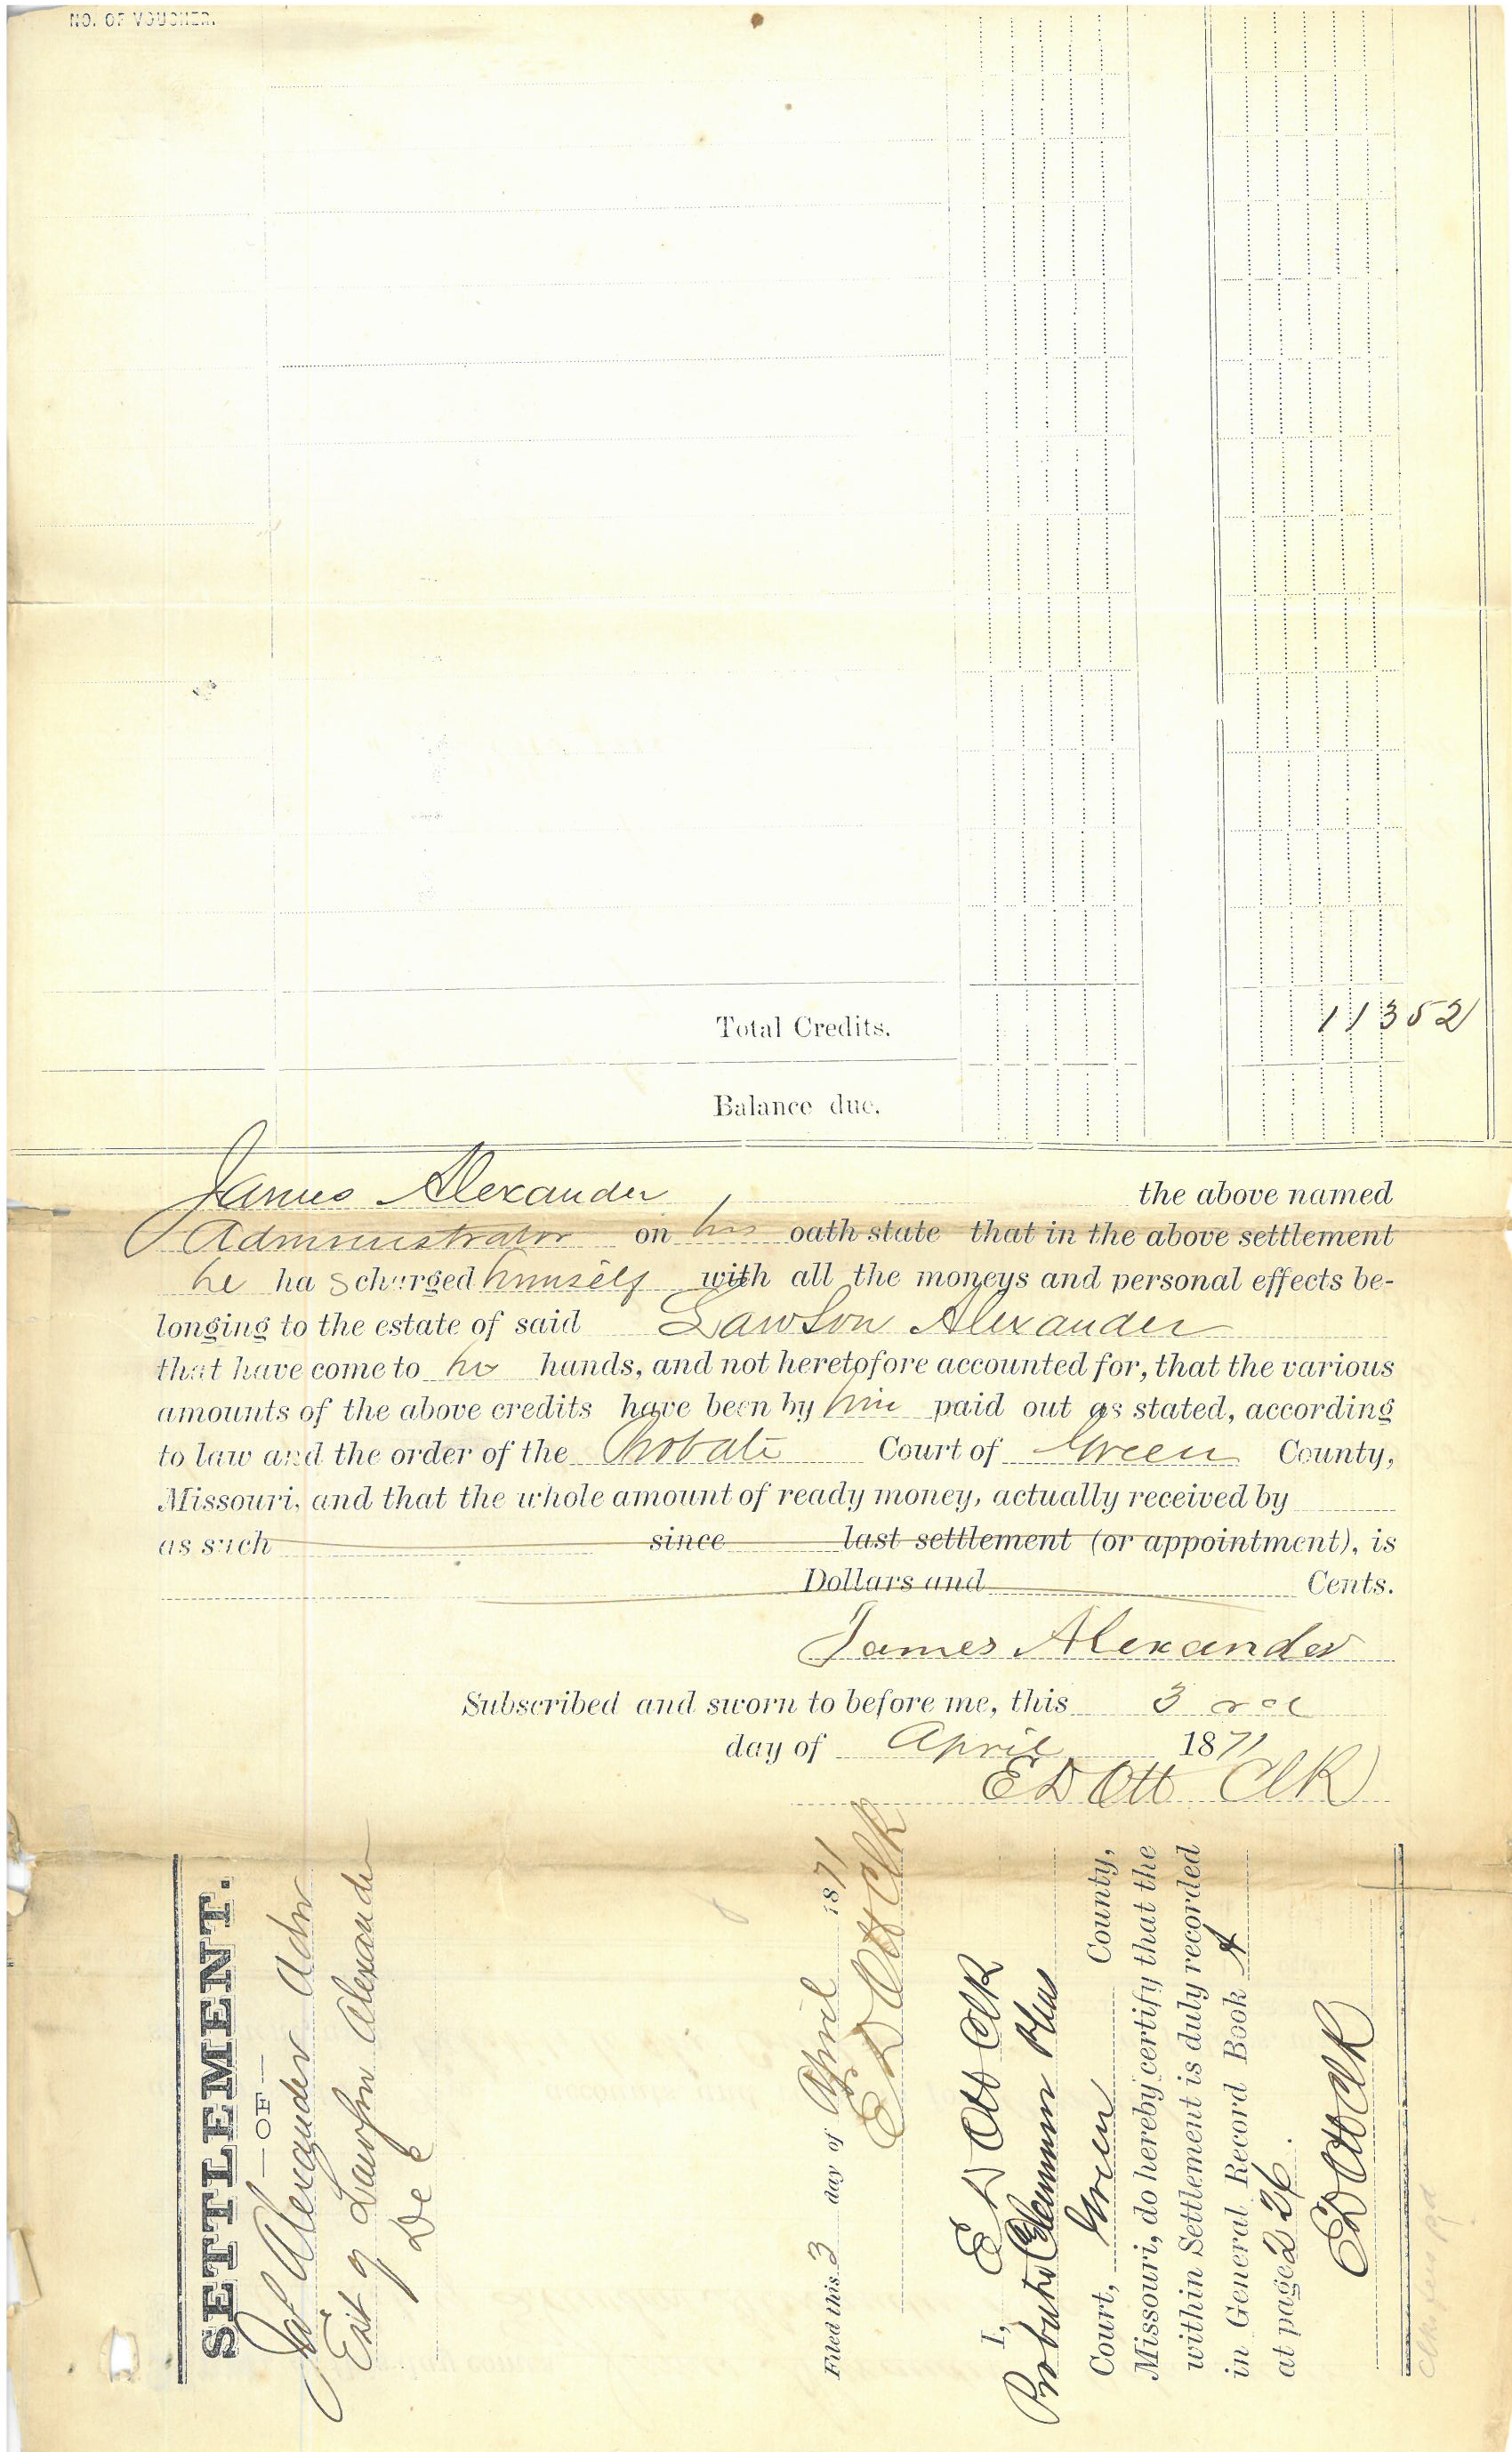 NO. OF VOUCHER.
Total Credits. 11352
Balance due.
James Alexander the above named
Administrator on his oath state that in the above settlement
he ha s charged himself with all the moneys and personal effects be-
longing to the estate of said Lawson Alexander
that have come to his hands, and not heretofore accounted for, that the various
amounts of the above credits have been by him paid out as stated, according
to law and the order of the Probate Court of Green County,
Missouri, and that the whole amount of ready money, actually received by
as such since last settlement (or appointment), is
Dollars and Cents.
James Alexander
Subscribed and sworn to before me, this 3 rd
day of April 1871
E D Ott Clk
SETTLEMENT.
—OF—
Jas Alexander Adm
Est of Lawson Alexander
Dec
Filed this 3 day of April 1871
E D Ott Clk
I, E D Ott Clk
Probate & Common Pleas
Court, Green County,
Missouri, do hereby certify that the
within Settlement is duly recorded
in General Record Book A
at page 226.
E D Ott Clk